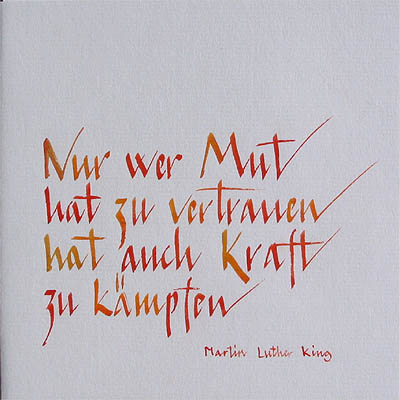 Nur wer Mut
hat zu vertrauen
hat auch Kraft
zu kämpfen
Martin Luther King